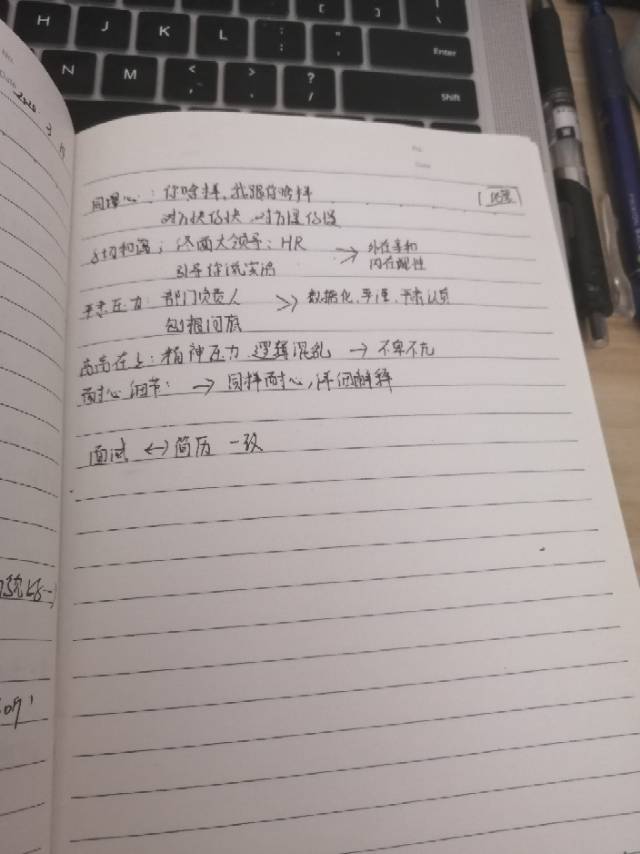 H
J
K
L
:
;
"
'
Enter
N
M
<
,
>
.
?
/
Shift
No.
Date
同理心：你啥样，我跟你啥样
对方快你快 对方慢你慢
亲切和蔼；终面大领导；HR → 外在亲和
引导你说实话 内在理性
严肃压力：部门负责人 >> 数据化，严谨，严肃认真
包括问题
高高在上：精神压力 逻辑混乱 → 不卑不亢
耐心细节： → 同样耐心，详细解释
面试 ↔ 简历 一致